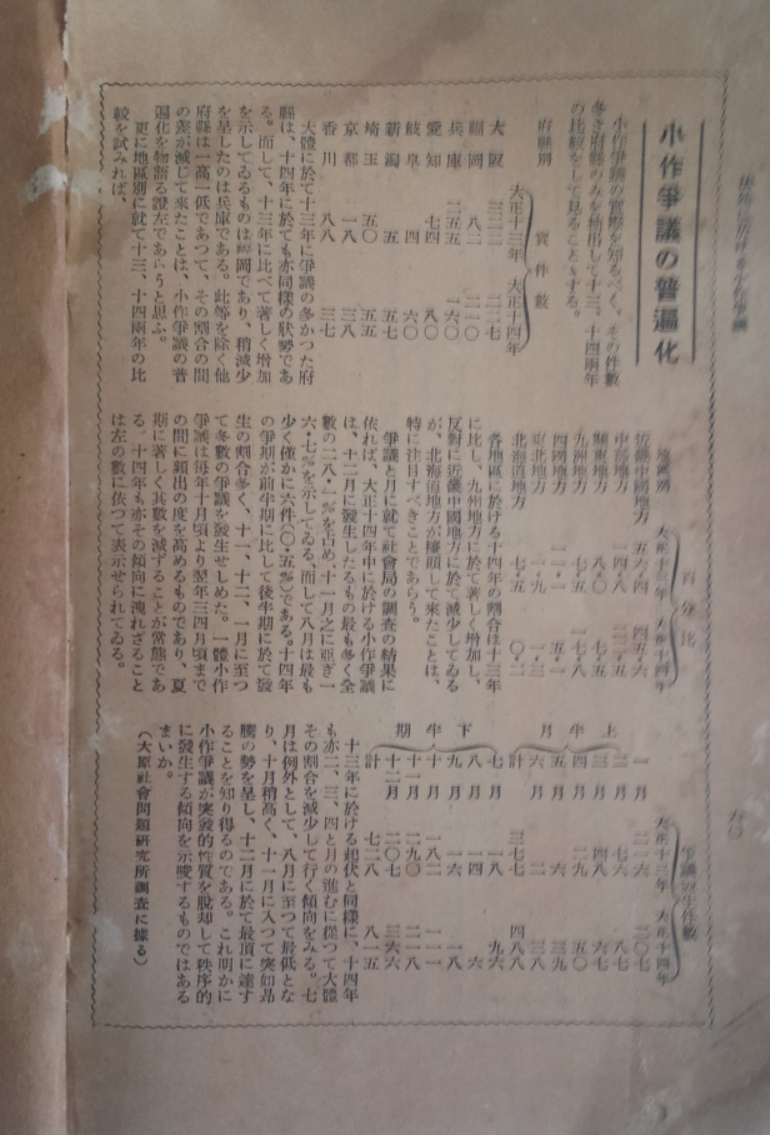 小作爭議の普遍化
小作爭議の實際を知るべく、その件數
多き府縣のみを摘出して十三、十四兩年
の比較をして見ることゝする。
府縣別 實件數
大正十三年 大正十四年
大阪 三二二 二二七
福岡 八二 二一〇
兵庫 二五五 一六〇
愛知 七四 八〇
岐阜 四 六〇
新潟 五 五七
埼玉 五〇 五五
京都 一八 三八
香川 八八 三七
大體に於て十三年に爭議の多かつた府
縣は、十四年に於ても亦同樣の狀勢であ
る。而して、十三年に比べて著しく增加
を示してゐるものは福岡であり、稍減少
を呈したのは兵庫である。此等を除く他
府縣は一高一低であつて、その割合の間
の差が減じて來たことは、小作爭議の普
遍化を物語る證左であらうと思ふ。
更に地區別に就て十三、十四兩年の比
較を試みれば、
地區別 百分比
大正十三年 大正十四年
近畿中國地方 五六・四 四五・六
中部地方 一四・八 二二・五
關東地方 八・〇 七・五
九洲地方 七・五 一七・八
四國地方 一一・一 五・一
東北地方 一・九 一・三
北海道地方 七・五 〇・二
各地區に於ける十四年の割合は十三年
に比し、九州地方に於て著しく增加し、
反對に近畿中國地方に於て減少してゐる
が、北海道地方が擡頭して來たことは、
特に注目すべきことであらう。
爭議と月に就て社會局の調査の結果に
依れば、大正十四年中に於ける小作爭議
は、十二月に發生したるもの最も多く全
數の二八・一%を占め、十一月之に亞ぎ一
六・七%を示してゐる、而して八月は最も
少く僅かに六件(〇・五%)である。十四年
の爭期が前半期に比して後半期に於て發
生の割合多く、十一、十二、一月に至つ
て多數の爭議を發生せしめた。一體小作
爭議は每年十月頃より翌年三四月頃まで
の間に頻出の度を高めるものであり、夏
期に著しく其數を減ずることが常態であ
る。十四年も亦その傾向に洩れざること
は左の數に依つて表示せられてゐる。
爭議發生件數
大正十三年 大正十四年
上半月
一月 二一六 二〇七
二月 七六 八七
三月 四八 六七
四月 二九 五〇
五月 六 三九
六月 二 三八
計 三七七 四八八
下半期
七月 一八 九六
八月 一四 六
九月 一六 一八
十月 一八二 一一一
十一月 二九〇 二一八
十二月 二〇七 三六六
計 七二八 八一五
十三年に於ける起伏と同樣に、十四年
も亦二、三、四と月の進むに從つて大體
その割合を減少して行く傾向をみる。七
月は例外として、八月に至つて最低とな
り、十月稍高く、十一月に入つて突如昂
騰の勢を呈し、十二月に於て最頂に達す
ることを知り得るのである。これ明かに
小作爭議が突發的性質を脫却して秩序的
に發生する傾向を示唆するものではある
まいか。
(大原社會問題硏究所調査に據る)
六〇